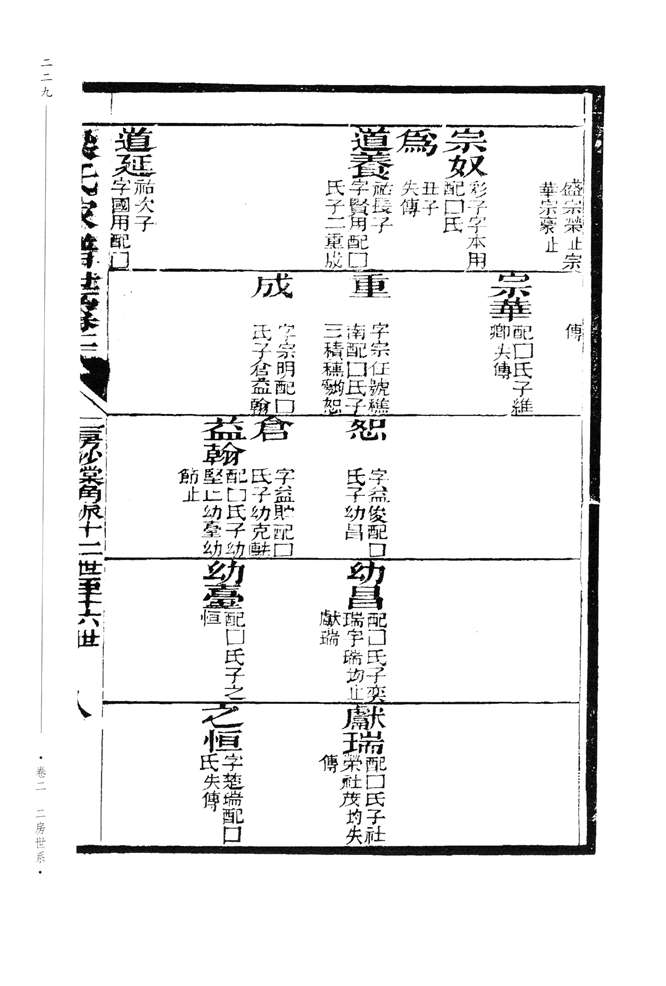 盛宗榮止宗
華宗豪止
宗奴
彩子字本用
配囗氏
為
丑子
失傳
道養
祐長子
字賢用配囗
氏子二重成
道延
祐次子
字國用配囗
傳
宗華
配囗氏子維
卿失傳
重
字宗任號樵
南配囗氏子
三積穗恕
成
字宗明配囗
氏子倉益翰
恕
字益俊配囗
氏子幼昌
倉
字益貯配囗
氏子幼克
益翰
配囗氏子幼
堅止幼臺幼
節止
幼昌
配囗氏子奕
瑞宇瑞均止
獻瑞
幼臺
配囗氏子之
恒
獻瑞
配囗氏子社
榮社茂均失
傳
之恒
字楚瑞配囗
氏失傳
氏家譜世系二
二房沙棠角派十二世至十六世
八
二二九
·卷二 二房世系·